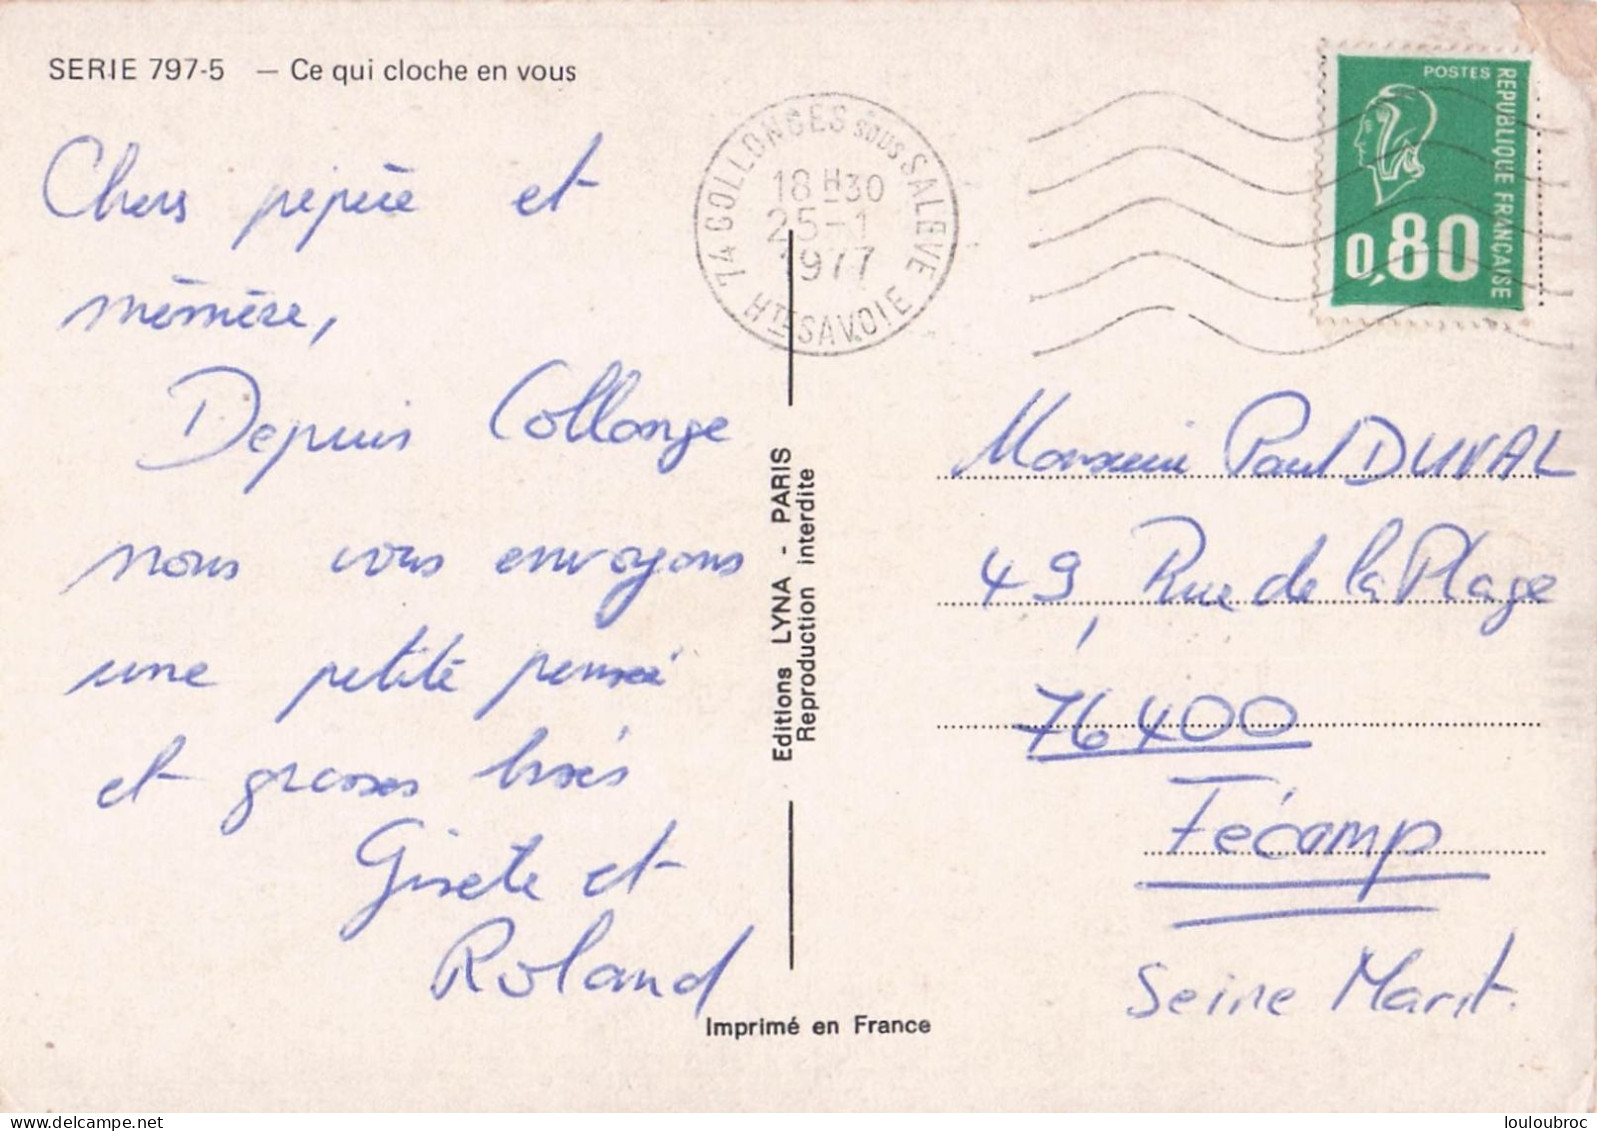 SERIE 797-5 — Ce qui cloche en vous
Chers pépère et
mémère,
Depuis Collonge
nous vous envoyons
une petite pensée
et grosses bises
Gisele et
Roland
74 COLLONGES sous SALEVE
18 H 30
25-1
1977
HTE SAVOIE
POSTES
REPUBLIQUE FRANÇAISE
0,80
Editions LYNA - PARIS
Reproduction interdite
Monsieur Paul DUVAL
49, Rue de la Plage
76400
Fécamp
Seine Marit.
Imprimé en France
www.delcampe.net
louloubroc